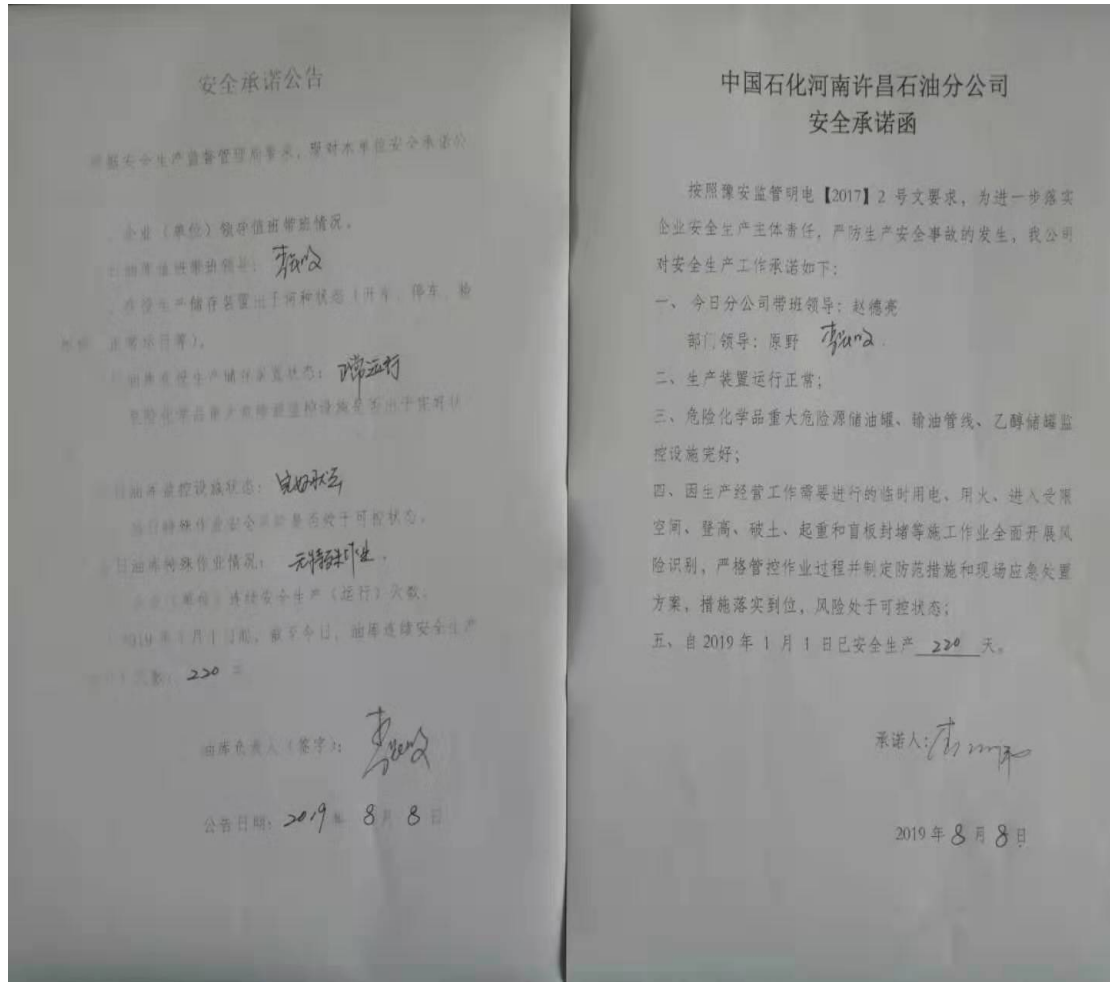 安全承诺公告
安全生产监督管理局要求，现对本单位安全承诺公
企业（单位）领导值班带班情况。
油库值班带班领导：
生产储存装置处于何种状态（开车、停车、检
正常运行等）。
油库生产储存装置状态：正常运行
危险化学品重大危险源监控设施是否处于完好状
油库监控设施状态：完好状态
特殊作业安全风险是否处于可控状态。
日油库特殊作业情况：无特殊作业.
企业（单位）连续安全生产（运行）天数。
2019年1月1日起，截至今日，油库连续安全生产
天数：220 天
油库负责人（签字）：
公告日期：2019年 8月 8日
中国石化河南许昌石油分公司
安全承诺函
按照豫安监管明电【2017】2 号文要求，为进一步落实
企业安全生产主体责任，严防生产安全事故的发生，我公司
对安全生产工作承诺如下：
一、 今日分公司带班领导：赵德亮
部门领导：原野
二、生产装置运行正常；
三、危险化学品重大危险源储油罐、输油管线、乙醇储罐监
控设施完好；
四、因生产经营工作需要进行的临时用电、用火、进入受限
空间、登高、破土、起重和盲板封堵等施工作业全面开展风
险识别，严格管控作业过程并制定防范措施和现场应急处置
方案，措施落实到位，风险处于可控状态；
五、自 2019 年 1 月 1 日已安全生产 220 天。
承诺人：
2019 年 8 月 8 日